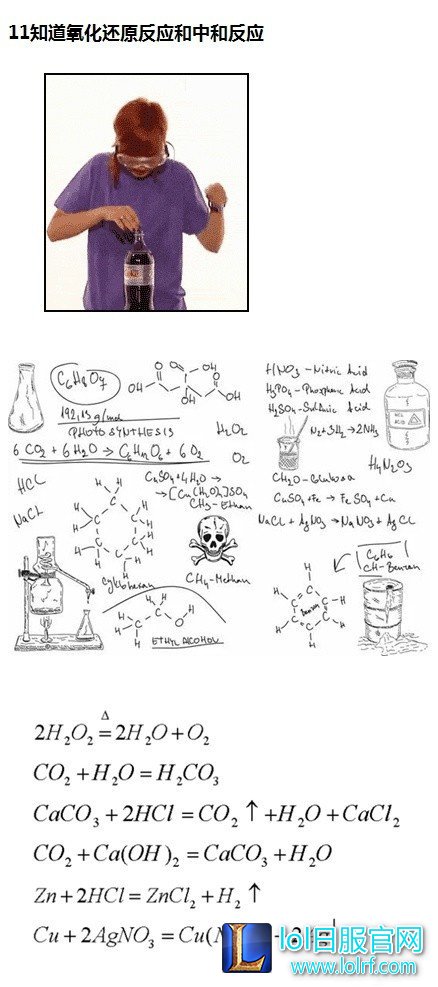 11知道氧化还原反应和中和反应
C₆H₈O₇
192,13 g/mol
PHOTOSYNTHESIS
6 CO₂ + 6 H₂O → C₆H₁₂O₆ + 6 O₂
H₂O₂
O₂
HCl
NaCl
CuSO₄ + 4H₂O →
→ [Cu(H₂O)₄]SO₄
CH₃-Ethan
CH₄-Methan
Cyklohexan
ETHYL ALCOHOL
HNO₃ - Nitric Acid
H₃PO₄ - Phosphoric Acid
H₂SO₄ - Sulfuric Acid
N₂ + 3H₂ → 2NH₃
H₂N₂O₃
CuSO₄ + Fe → FeSO₄ + Cu
NaCl + AgNO₃ → NaNO₃ + AgCl
C₆H₆
CH-Benzen
Benzen
2H₂O₂ ≜ 2H₂O + O₂
CO₂ + H₂O = H₂CO₃
CaCO₃ + 2HCl = CO₂ ↑ +H₂O + CaCl₂
CO₂ + Ca(OH)₂ = CaCO₃ + H₂O
Zn + 2HCl = ZnCl₂ + H₂ ↑
Cu + 2AgNO₃ = Cu(
lol日服官网
www.lolrf.com